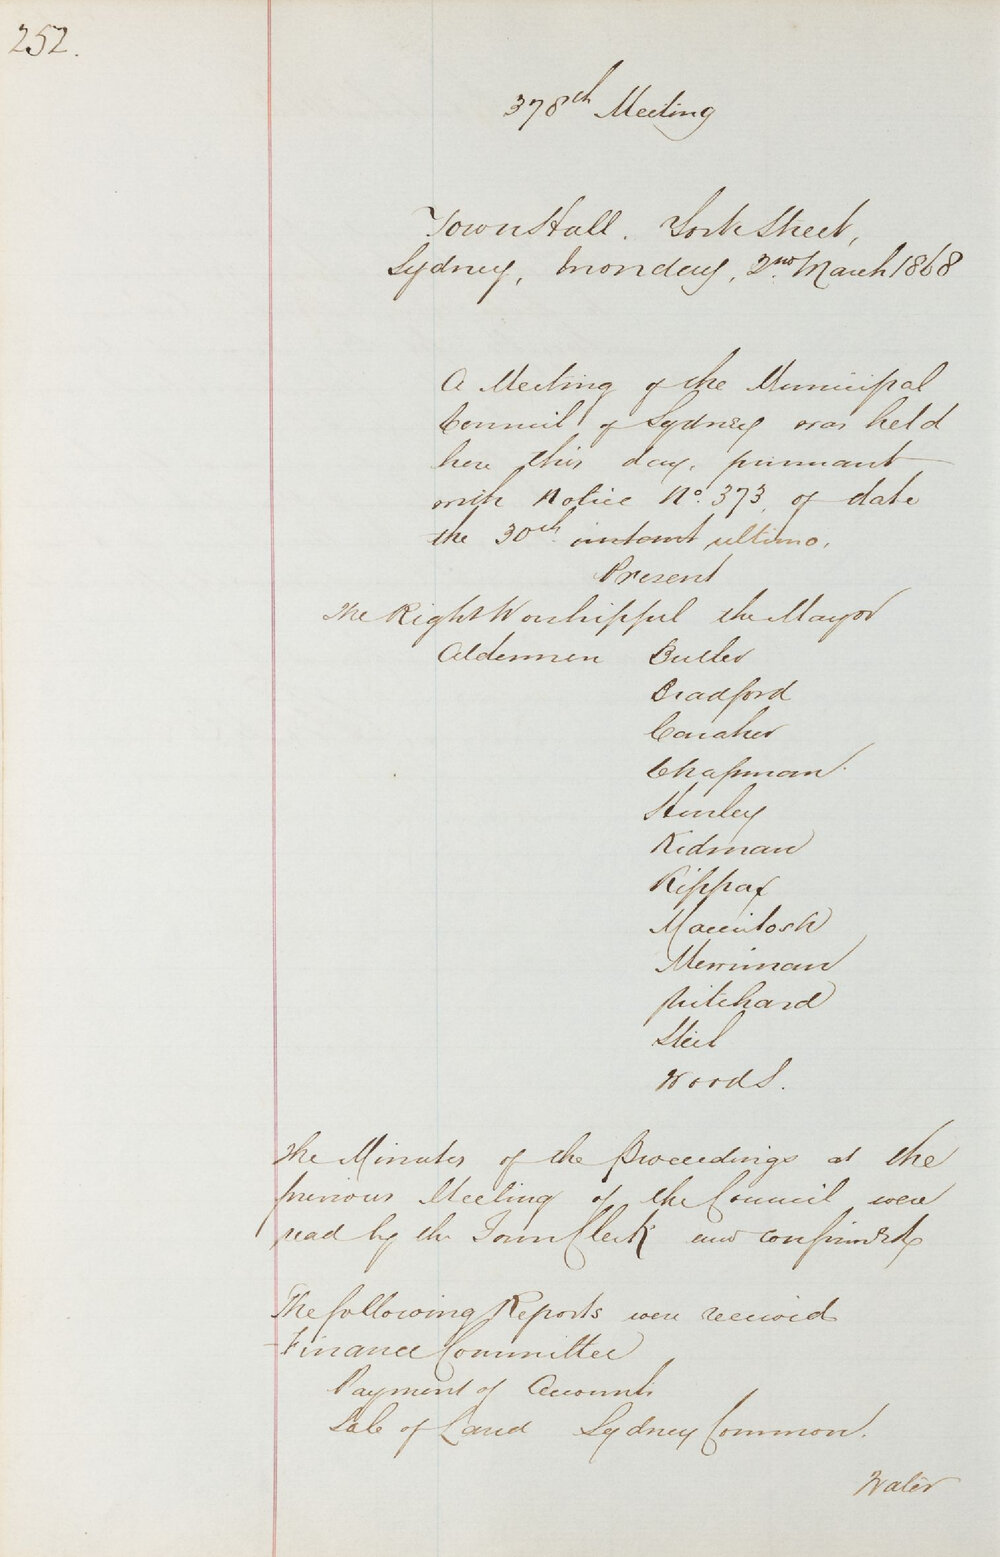 252.
378th Meeting
Town Hall. York Street,
Sydney, Monday, 2nd March 1868
A Meeting of the Municipal
Council of Sydney was held
here this day, pursuant
with Notice No. 373, of date
the 30th instant ultimo.
Present
The Right Worshipful the Mayor
Aldermen Butler
Bradford
Caraher
Chapman.
Hurley
Kidman
Kippax
Macintosh
Merriman
Pritchard
Steel
Woods.
The Minutes of the Proceedings at the
previous Meeting of the Council were
read by the Town Clerk and confirmed
The following Reports were received
Finance Committee
Payment of Accounts
Sale of Land Sydney Common.
Water